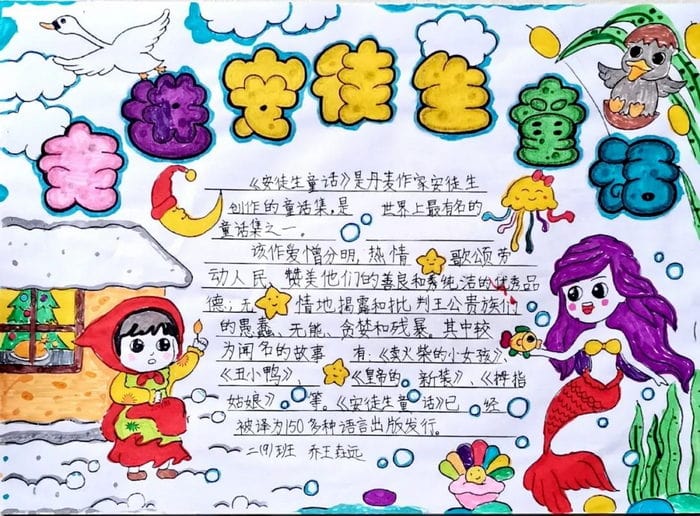 走进安徒生童话
《安徒生童话》是丹麦作家安徒生
创作的童话集,是 世界上最有名的
童话集之一.
该作爱憎分明,热情 歌颂劳
动人民、赞美他们的善良和纯洁的优秀品
德;无 情地揭露和批判王公贵族们
的愚蠢、无能、贪婪和残暴。其中较
为闻名的故事 有:《卖火柴的小女孩》、
《丑小鸭》、 《皇帝的 新装》、《拇指
姑娘》 等。《安徒生童话》已 经
被译为150多种语言出版发行。
二(9)班 乔王垚远